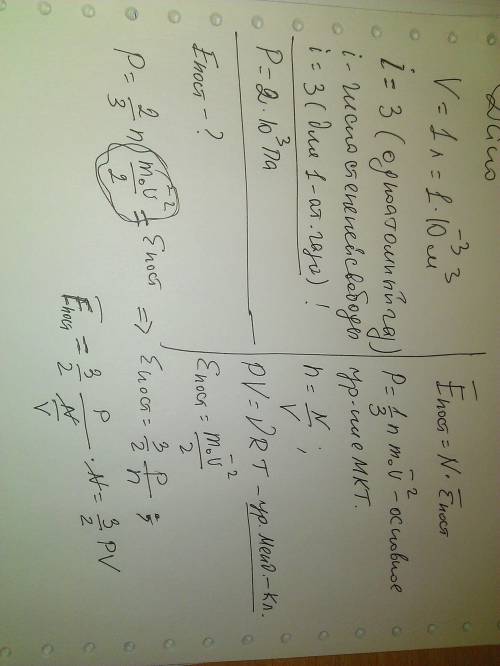 Дано
V = 1 л = 1·10⁻³ м³
i = 3 (одноатомный газ)
i - число степеней свободы
i = 3 (для 1-ат. газа) !
P = 2·10³ Па
Eпост - ?
E̅пост = N·ε̅пост
P = 1/3 n m₀v̅² - основное
ур-ние МКТ.
n = N/V ;
PV = νRT - ур. Менд.-Кл.
εпост = m₀v̅²/2
P = 2/3 n m₀v̅²/2 = εпост => εпост = 3/2 P/n ;
E̅пост = 3/2 P/(N/V) · N = 3/2 PV